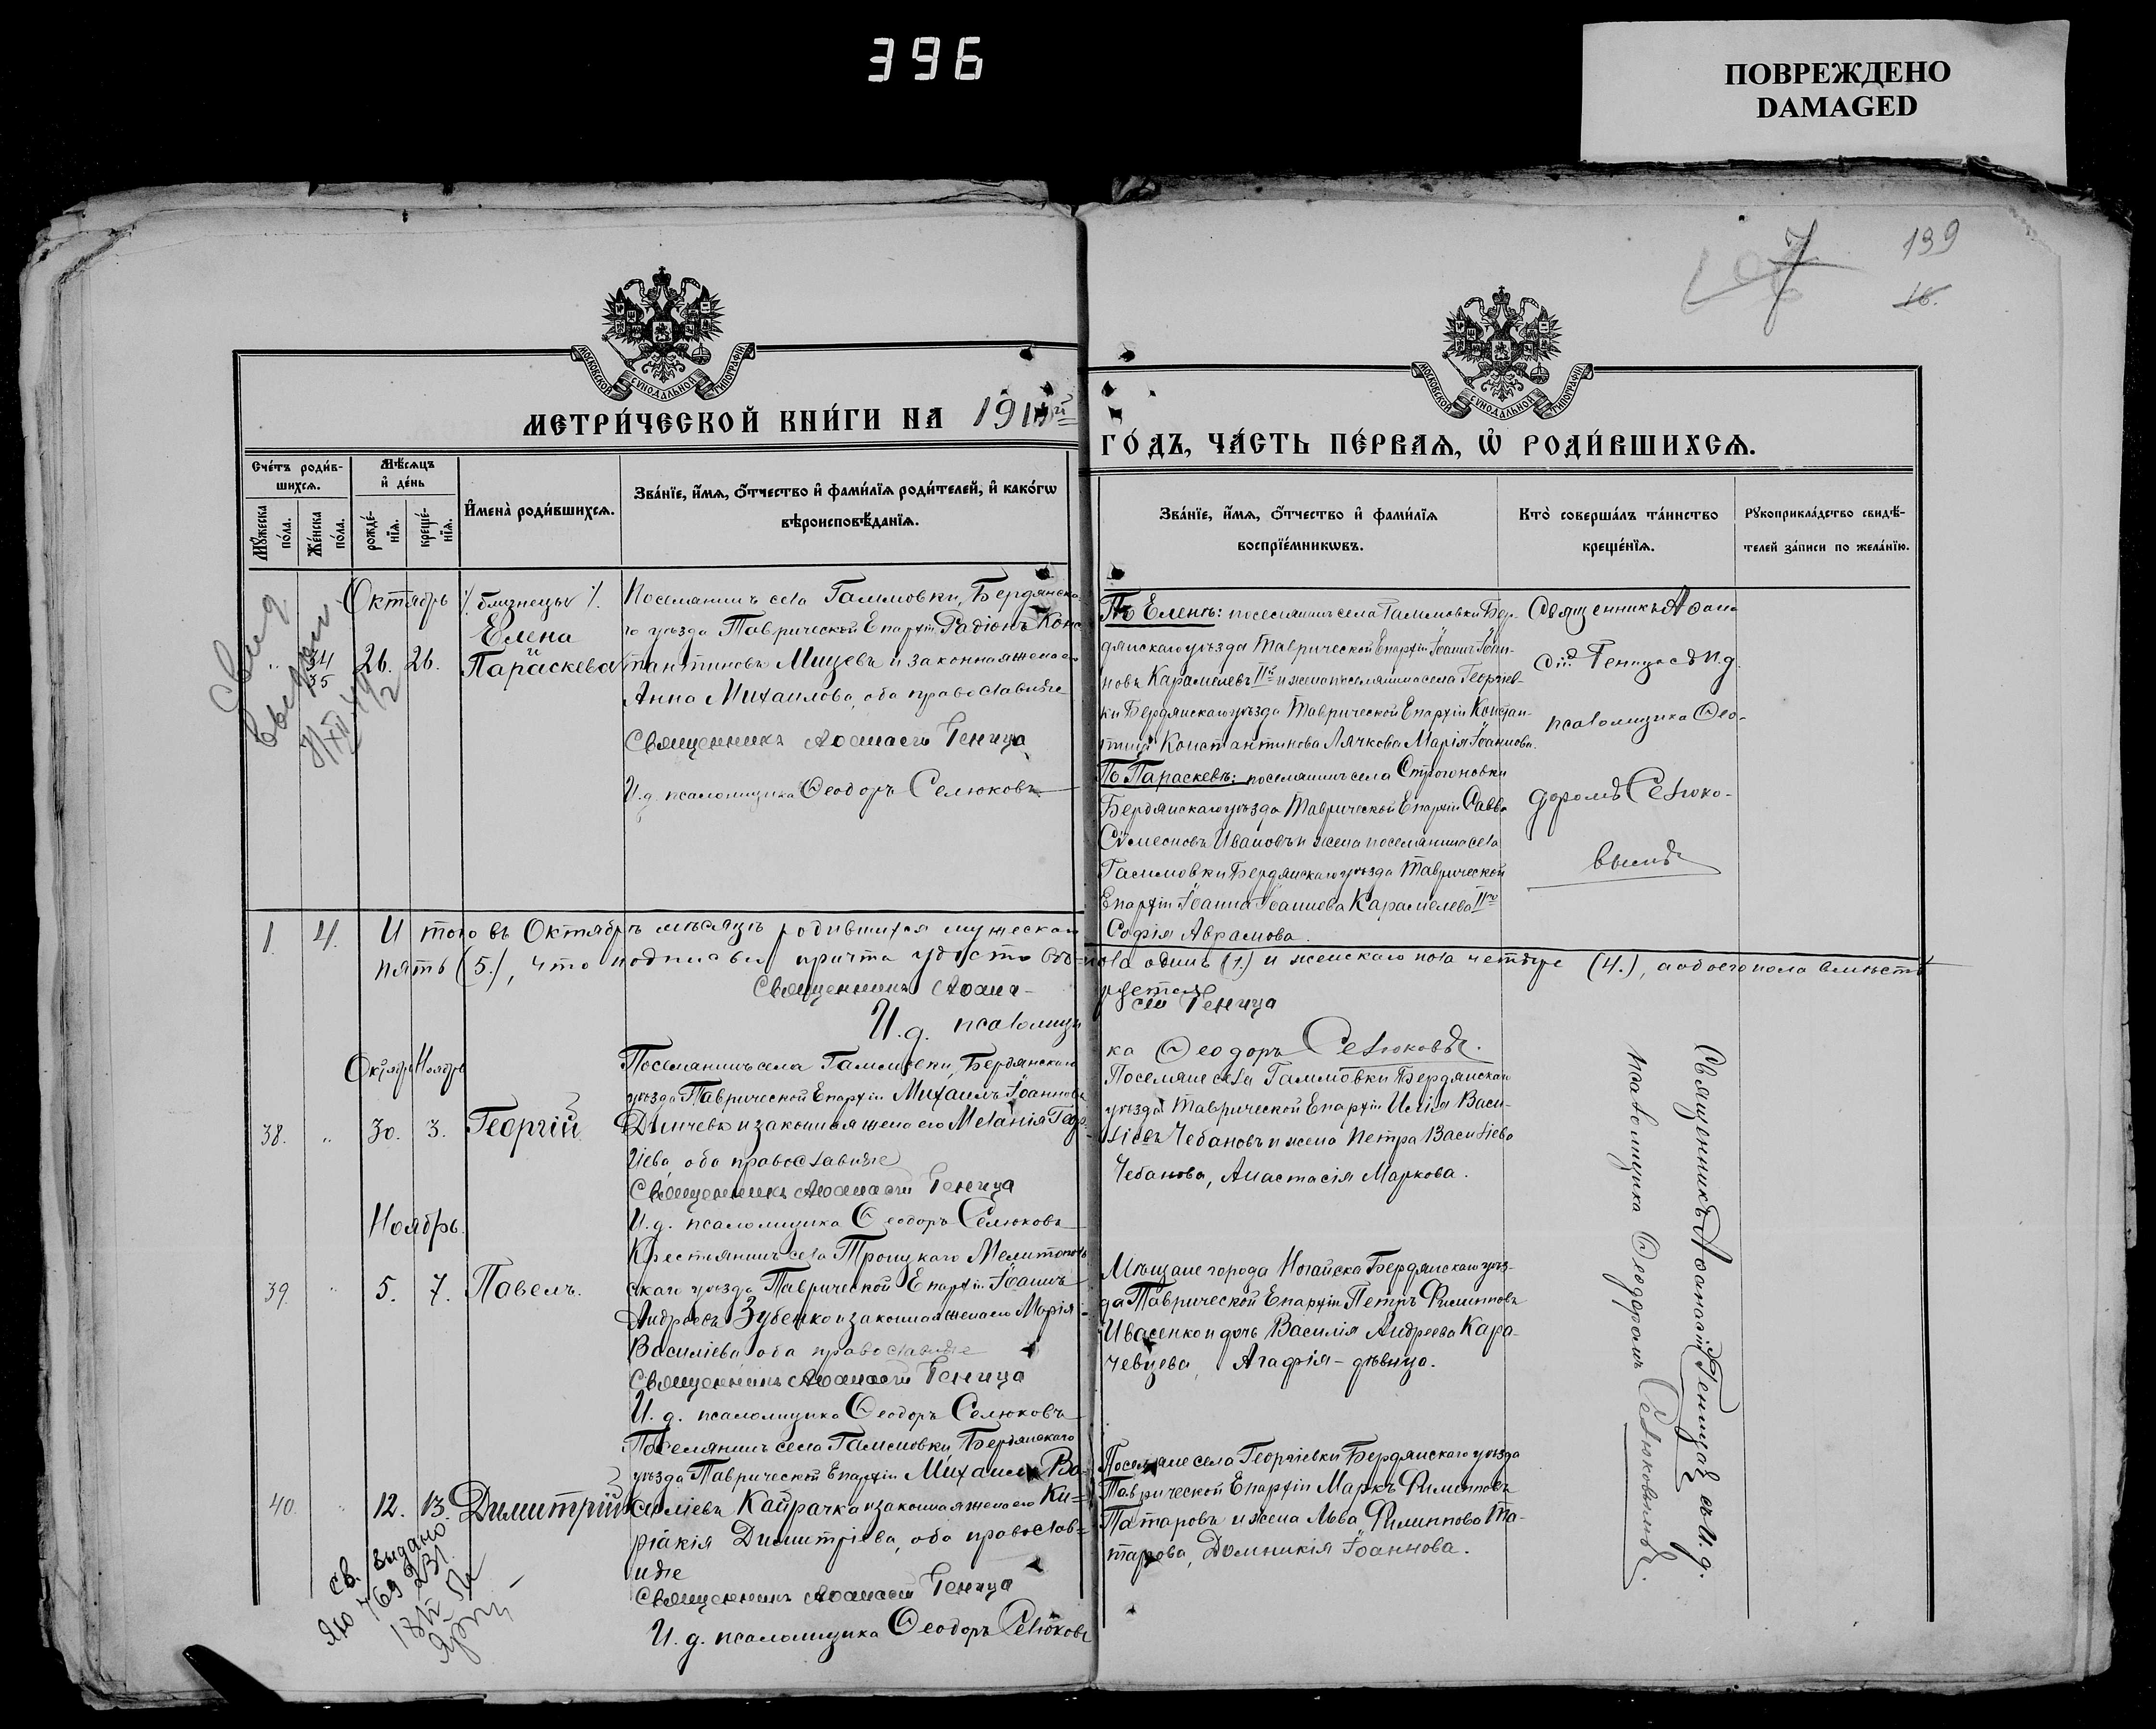 396
ПОВРЕЖДЕНО
DAMAGED
139
16.
МОСКОВСКОЙ СУНОДАЛЬНОЙ ТИПОГРАФІИ
МОСКОВСКОЙ СУНОДАЛЬНОЙ ТИПОГРАФІИ
МЕТРИ́ЧЕСКОЙ КНИ́ГИ НА 191
ГО́ДЪ, ЧА́СТЬ ПЕ́РВАѦ, Ѡ҆ РОДИ́ВШИХСѦ.
Сче́тъ роди́в-
шихсѧ.
Мꙋ́жеска по́ла.
Же́нска по́ла.
Мѣ́сѧцъ
и҆ де́нь
рожде́-нїѧ.
креще́-нїѧ.
И҆мена̀ роди́вшихсѧ.
Зва́нїе, и҆́мѧ, ѻ҆́тчество и҆ фами́лїѧ роди́телей, и҆ како́гѡ
вѣроисповѣ́данїѧ.
Зва́нїе, и҆́мѧ, ѻ҆́тчество и҆ фами́лїѧ
воспрїе́мникѡвъ.
Кто̀ соверша́лъ та́инство
креще́нїѧ.
Рꙋкоприкла́дство свидѣ́-
телей за́писи по жела́нїю.
Октябрь
" 34 35 26. 26.
близнецы
Елена
и
Параскева
Поселянинъ села Гаммовки, Бердянска-
го уѣзда Таврической Епархіи Радіонъ Конс
тантиновъ Мицевъ и законная жена его
Анна Михаилова, оба православные
Священникъ Аѳанасій Геница
И. д. псаломщика Ѳеодоръ Селюковъ
По Еленѣ: поселянинъ села Гаммовки Бер-
дянскаго уѣзда Таврической Епархіи Іоаннъ Іоан-
новъ Карамелевъ IIй и жена поселянина села Георгіев-
ки Бердянскаго уѣзда Таврической Епархіи Констан-
тина Константинова Лячкова Марія Іоаннова.
По Параскевѣ: поселянинъ села Строгоновки
Бердянскаго уѣзда Таврической Епархіи Савва
Сѵмеоновъ Ивановъ и жена поселянина села
Гаммовки Бердянскаго уѣзда Таврической
Епархіи Іоанна Іоаннова Карамелева IIго
Софія Аврамова.
Священникъ Аѳана-
сій Геница съ И. д.
псаломщика Ѳео-
доромъ Селюко-
вымъ
1. 4. И того въ Октябрѣ мѣсяцѣ родившихся мужескаго
пола одинъ (1.) и женскаго пола четыре (4.), а обоего пола вмѣстѣ
пять (5.), что подписью причта удосто вѣ-
ряется
Священникъ Аѳана-
сій Геница
И. д. псаломщи
ка Ѳеодоръ Селюковъ.
Октябрь Ноябрь
38. " 30. 3. Георгій
Поселянинъ села Гаммовки, Бердянскаго
уѣзда Таврической Епархіи Михаилъ Іоанновъ
Динчевъ и законная жена его Меланія Геор-
гіева, оба православные
Священникъ Аѳанасій Геница
И. д. псаломщика Ѳеодоръ Селюковъ
Поселяне села Гаммовки Бердянскаго
уѣзда Таврической Епархіи Илія Васи-
ліевъ Чебановъ и жена Петра Василіева
Чебанова, Анастасія Маркова.
Ноябрь.
39. " 5. 7. Павелъ.
Крестьянинъ села Троицкаго Мелитополь
скаго уѣзда Таврической Епархіи Іоаннъ
Андреевъ Зубенко и законная жена его Марія
Василіева, оба православные
Священникъ Аѳанасій Геница
И. д. псаломщика Ѳеодоръ Селюковъ
Мѣщане города Ногайска Бердянскаго уѣз-
да Таврической Епархіи Петръ Филипповъ
Ивасенко и дочь Василія Андреева Кара-
чевцева, Агафія - дѣвица.
40. " 12. 13. Димитрій
Поселянинъ села Гаммовки Бердянскаго
уѣзда Таврической Епархіи Михаилъ Ва-
силіевъ Кайрачка и законная жена его Ки-
ріакія Димитріева, оба православ-
ные
Священникъ Аѳанасій Геница
И. д. псаломщика Ѳеодоръ Селюковъ
Поселяне села Георгіевки Бердянскаго уѣзда
Таврической Епархіи Маркъ Филипповъ
Татаровъ и жена Льва Филиппова Та-
тарова, Домникія Іоаннова.
Священникъ Аѳанасій Геница съ И. д.
псаломщика Ѳеодоромъ Селюковымъ.
св. выдано